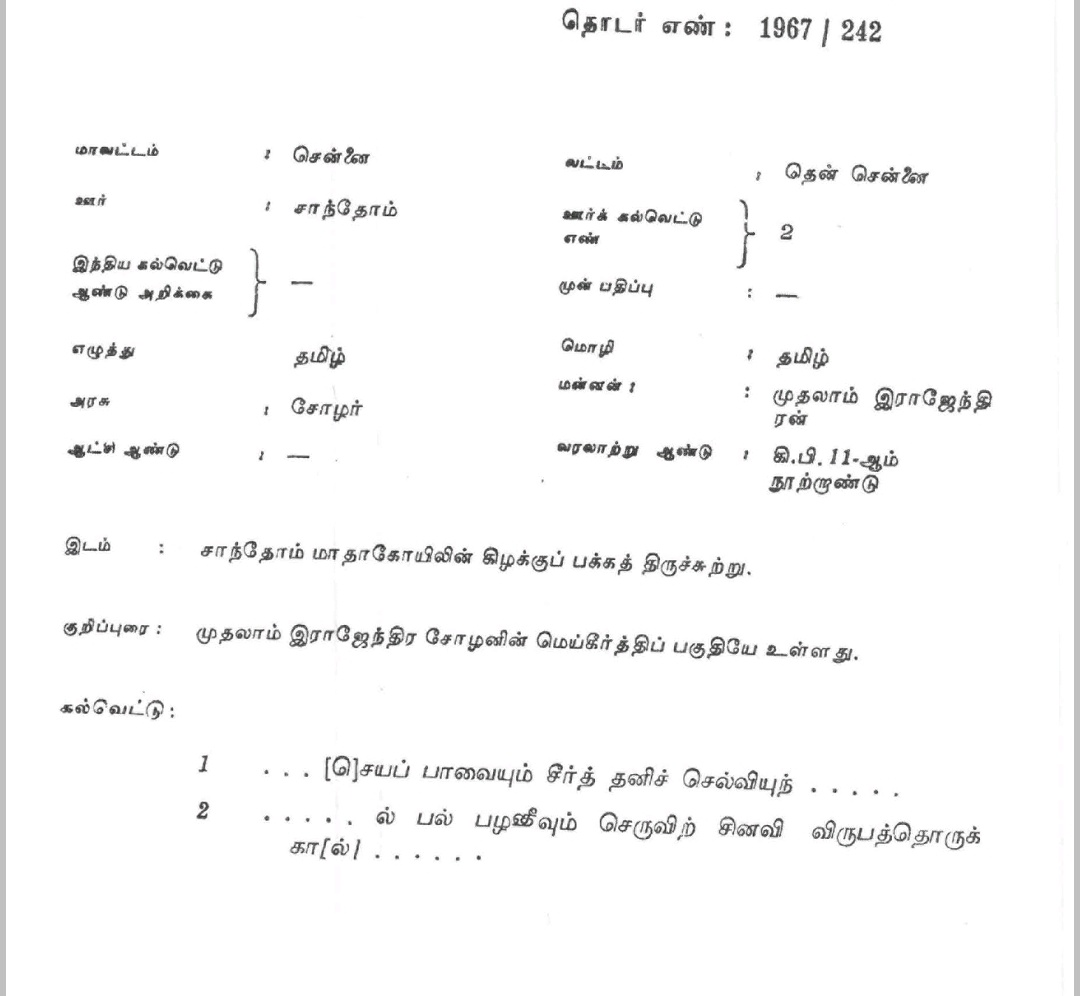 தொடர் எண் : 1967 / 242
மாவட்டம் : சென்னை
வட்டம் : தென் சென்னை
ஊர் : சாந்தோம்
ஊர்க் கல்வெட்டு எண் } 2
இந்திய கல்வெட்டு ஆண்டு அறிக்கை } —
முன் பதிப்பு : —
எழுத்து தமிழ்
மொழி : தமிழ்
அரசு : சோழர்
மன்னன் : : முதலாம் இராஜேந்தி
ரன்
ஆட்சி ஆண்டு : —
வரலாற்று ஆண்டு : கி.பி. 11-ஆம்
நூற்றாண்டு
இடம் : சாந்தோம் மாதாகோயிலின் கிழக்குப் பக்கத் திருச்சுற்று.
குறிப்புரை : முதலாம் இராஜேந்திர சோழனின் மெய்கீர்த்திப் பகுதியே உள்ளது.
கல்வெட்டு :
1 . . . [பெ]சயப் பாவையும் சீர்த் தனிச் செல்வியுந் . . . . .
2 . . . . . ல் பல் பழந்தீவும் செருவிற் சினவி விருபத்தொருக்
கா[ல்] . . . . . .